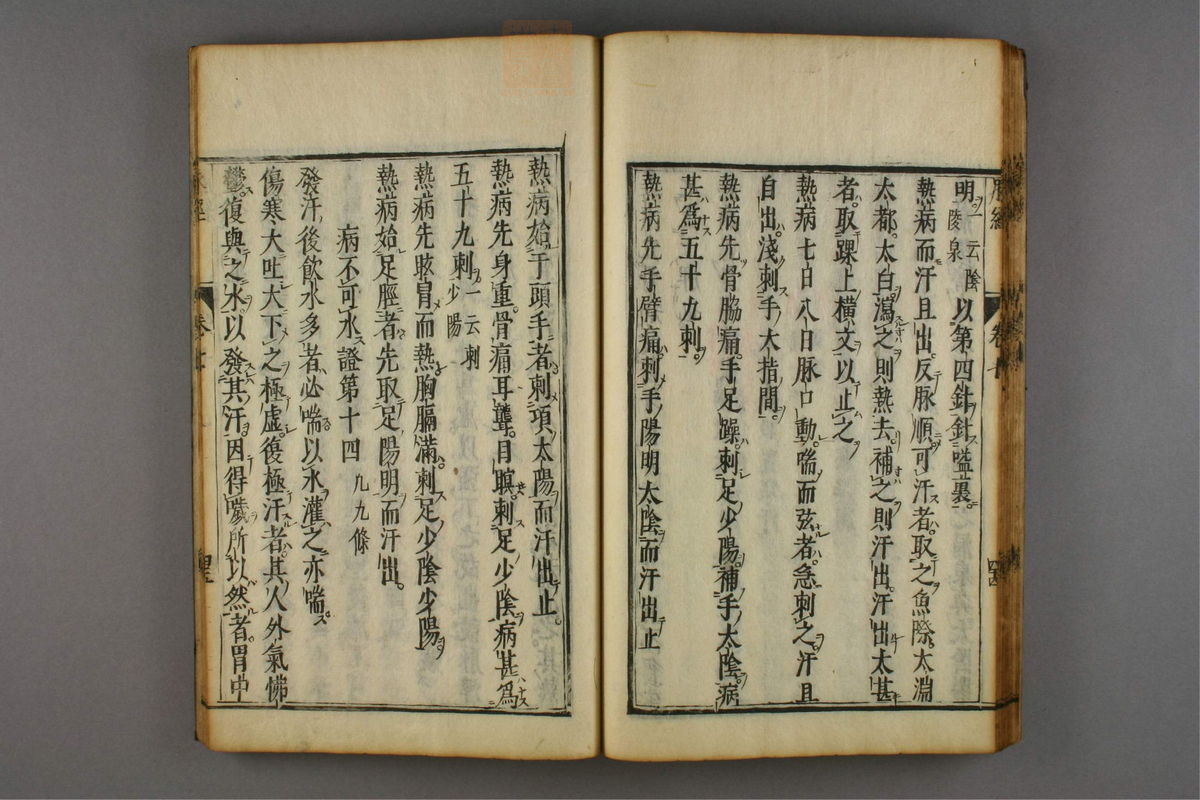 明一云陰陵泉以第四針針嗌裏
熱病而汗且出反脉順可汗者取之魚際太淵
太都太白瀉之則熱去補之則汗出汗出太甚
者取踝上橫文以止之
熱病七日八日脉口動喘而弦者急刺之汗且
自出淺刺手太指間
熱病先骨脇痛手足躁刺足少陽補手太陰病
甚爲五十九刺
熱病先手臂痛刺手陽明太陰而汗出止
熱病始于頭手者刺項太陽而汗出止
熱病先身重骨痛耳聾目瞑刺足少陰病甚爲
五十九刺一云刺少陽
熱病先眩冒而熱胸膈滿刺足少陰少陽
熱病始足脛者先取足陽明而汗出
病不可水證第十四凡九條
發汗後飲水多者必喘以水灌之亦喘
傷寒大吐大下之極虛復極汗者其人外氣怫
鬱復與之水以發其汗因得噦所以然者胃中